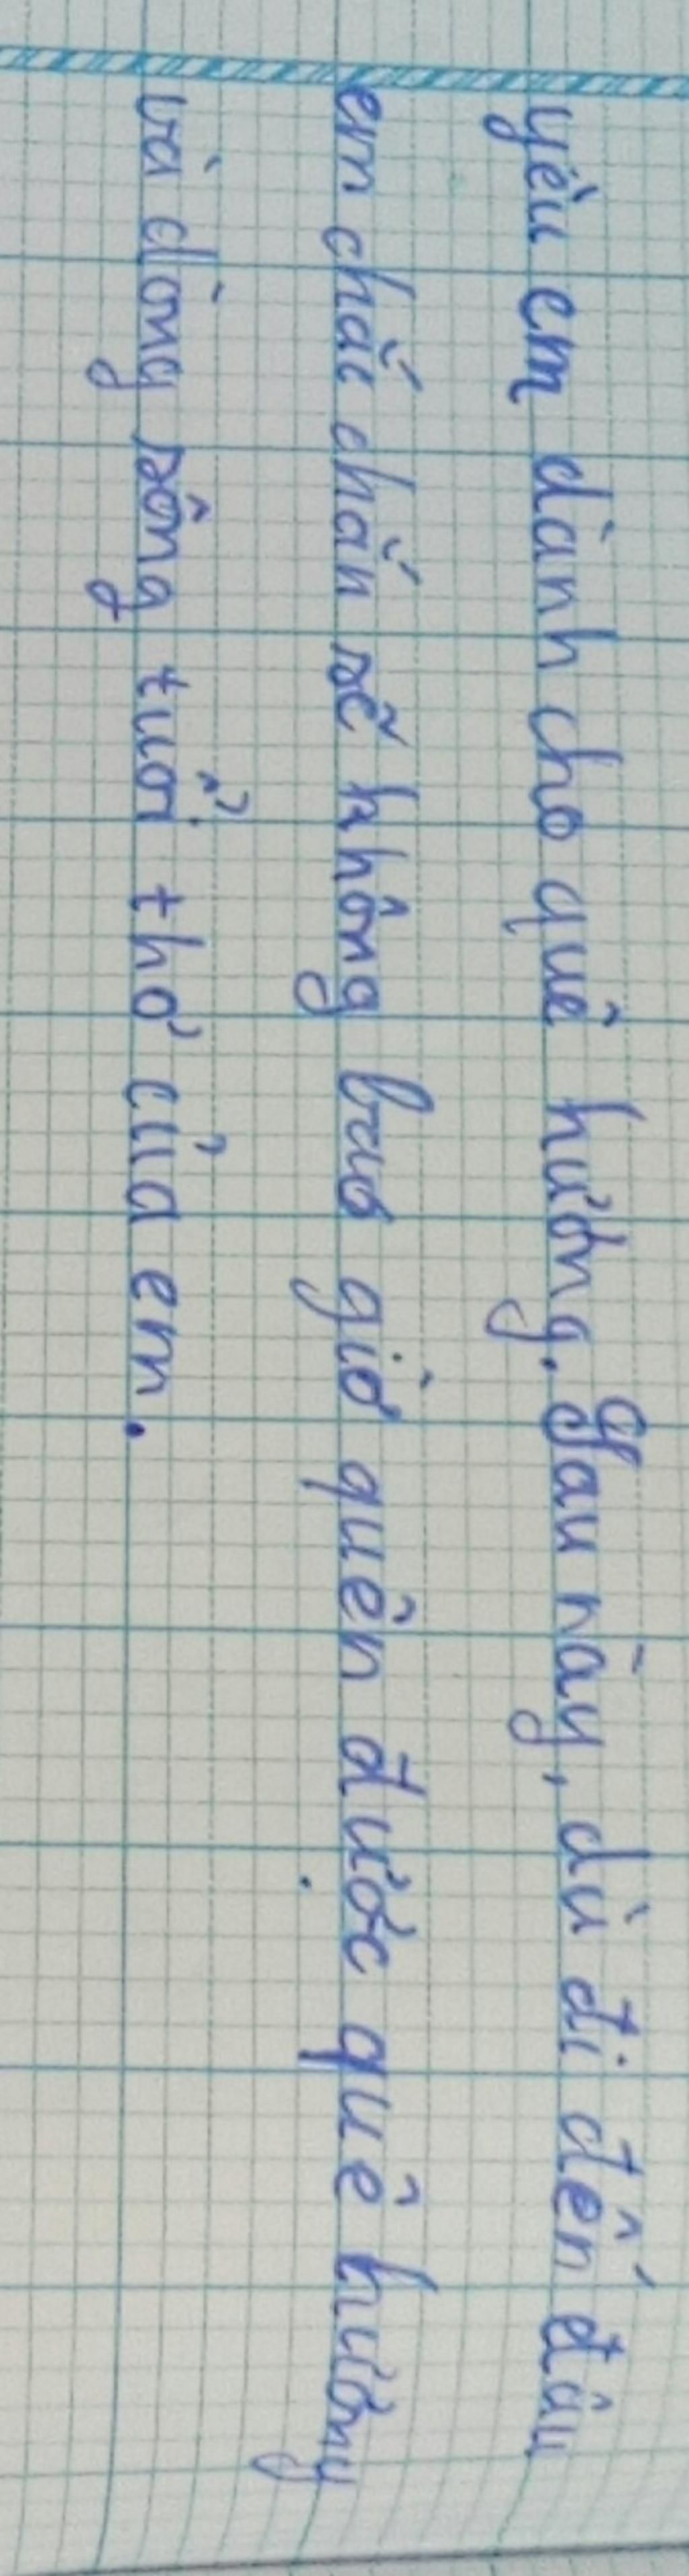 yêu em dành cho quê hương. Sau này, dù đi đến đâu
em chắc chắn sẽ không bao giờ quên được quê hương
và dòng sông tuổi thơ của em.